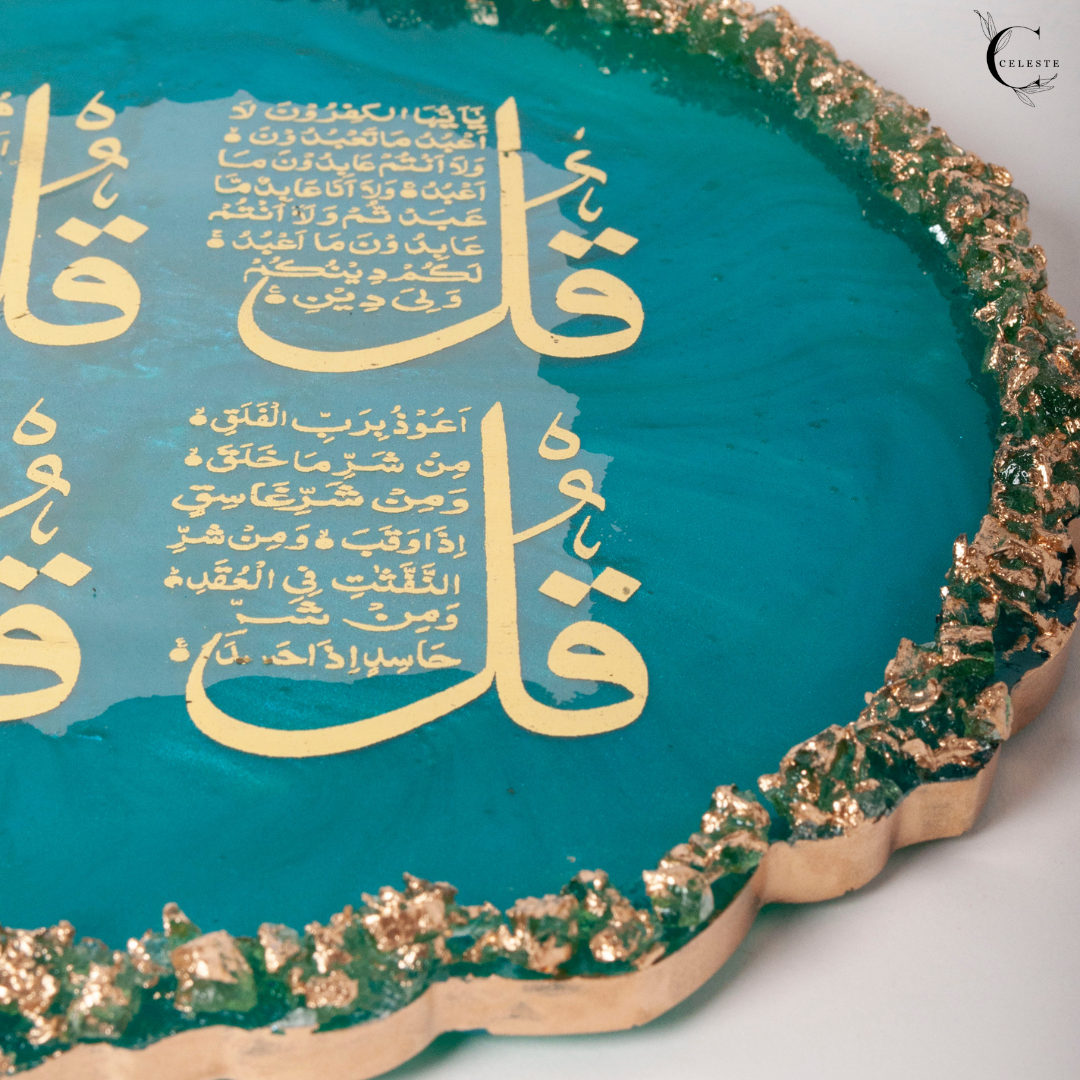 CELESTE
قُلْ
يَآ اَيُّهَا الْكٰفِرُوْنَ لَا
اَعْبُدُ مَا تَعْبُدُوْنَ
وَلَا اَنْتُمْ عَابِدُوْنَ مَا
اَعْبُدُ وَلَا اَنَا عَابِدٌ مَّا
عَبَدْتُّمْ وَلَا اَنْتُمْ
عَابِدُوْنَ مَا اَعْبُدُ
لَكُمْ دِيْنُكُمْ
وَلِيَ دِيْنِ
قُلْ
اَعُوْذُ بِرَبِّ الْفَلَقِ
مِنْ شَرِّ مَا خَلَقَ
وَمِنْ شَرِّ غَاسِقٍ
اِذَا وَقَبَ وَمِنْ شَرِّ
النَّفّٰثٰتِ فِي الْعُقَدِ
وَمِنْ شَرِّ
حَاسِدٍ اِذَا